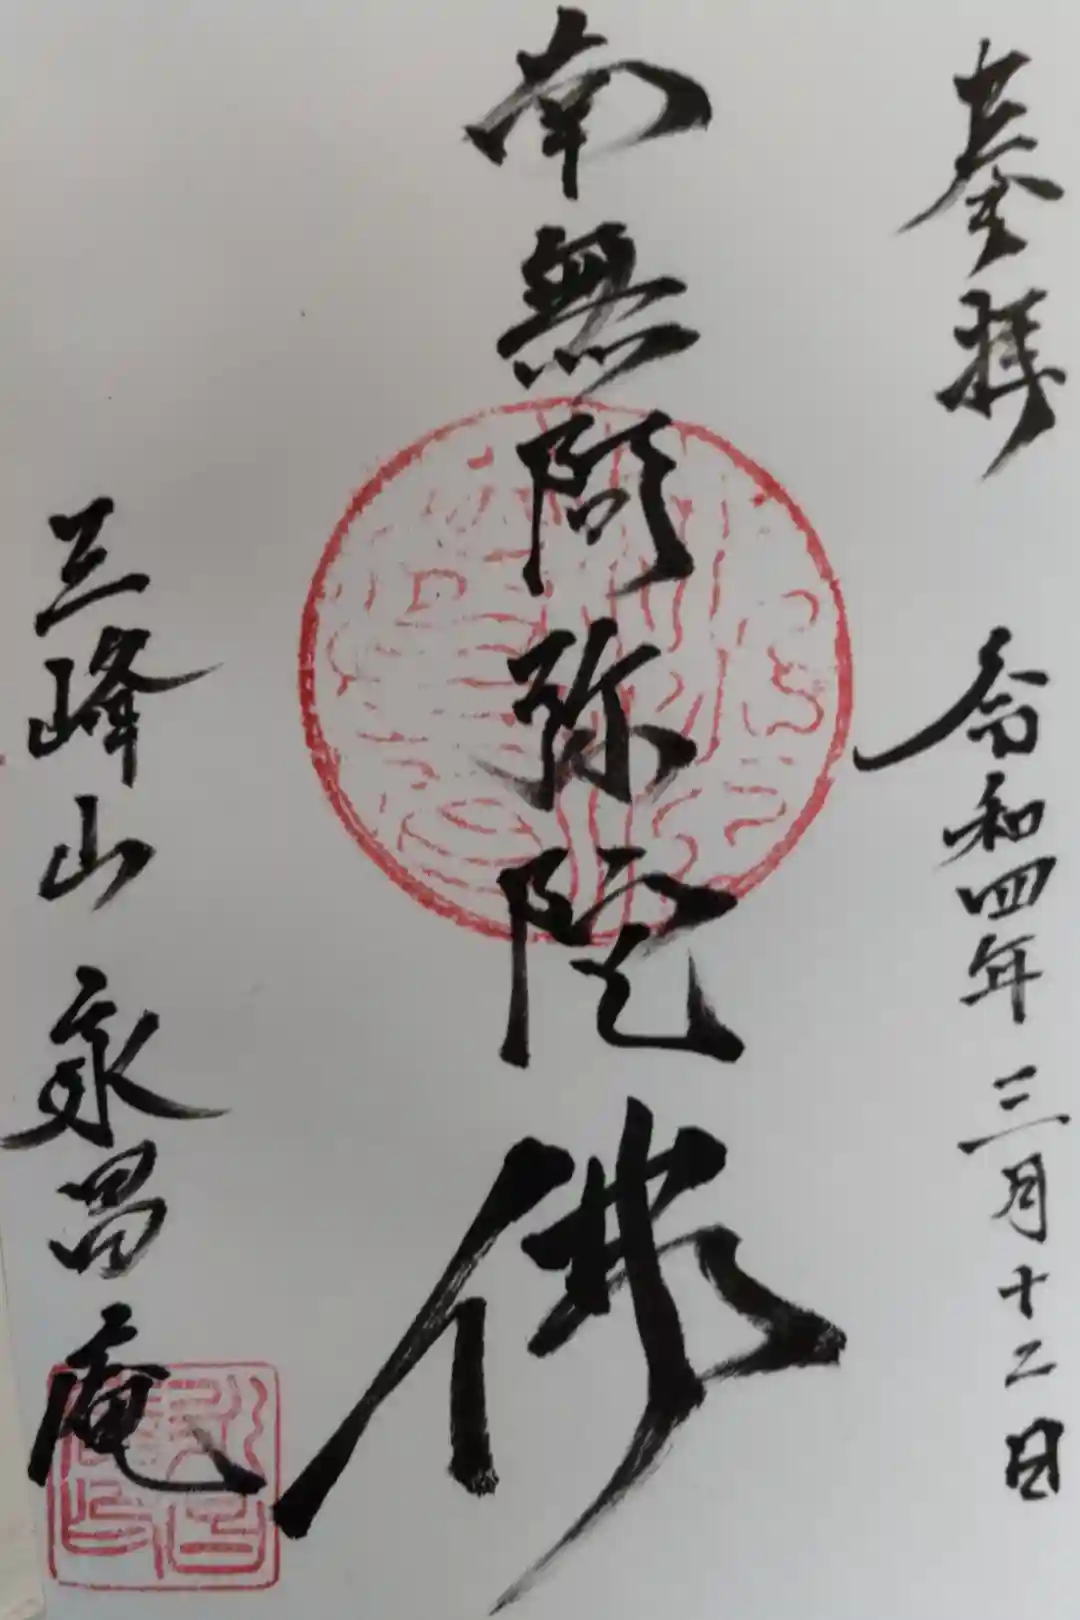 奉拝 令和四年三月十二日
南無阿弥陀佛
三峰山 永昌庵